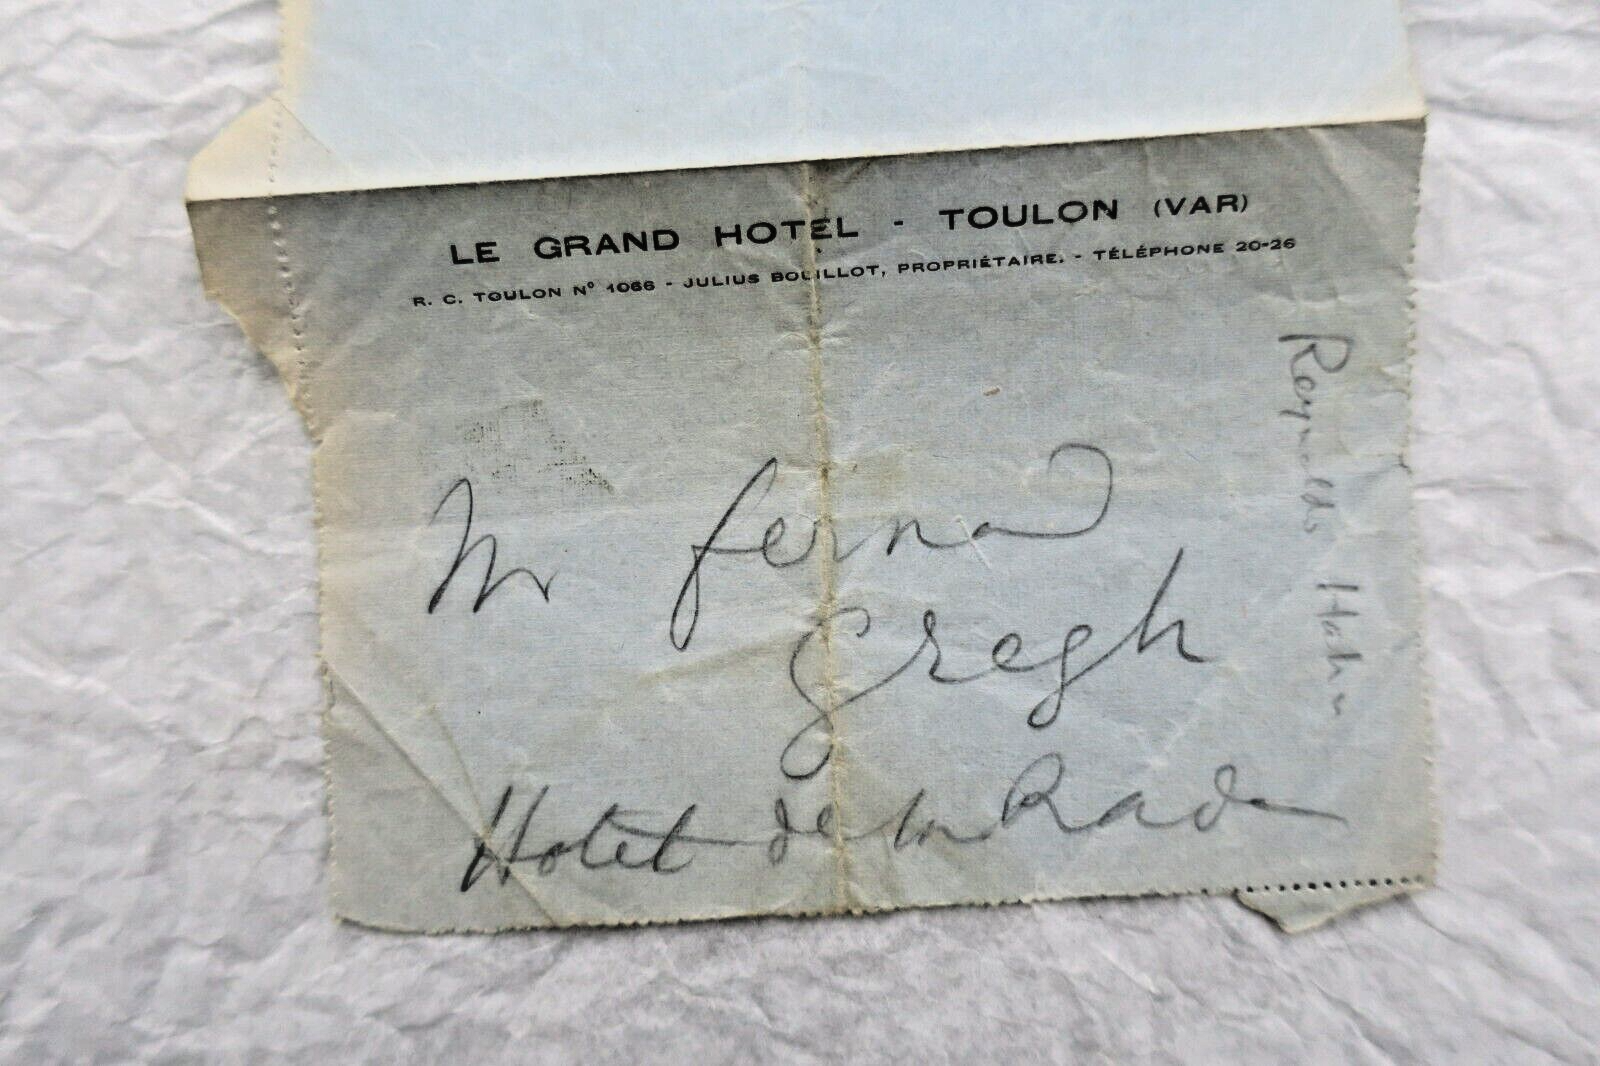 LE GRAND HOTEL - TOULON (VAR)
R. C. TOULON Nº 1066 - JULIUS BOUILLOT, PROPRIÉTAIRE. - TÉLÉPHONE 20-26
Mr Fernand
Gregh
Hotel de la Rade
Reynaldo Hahn